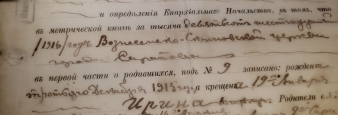 и опредѣленія Епархіальнаго Начальства, въ томъ, что
въ метрической книгѣ за тысяча девятьсотъ шестнадцатый
/1916/ годъ Вознесенско-Сѣнновской церкви
города Саратова
въ первой части о родившихся, подъ № 9 записано: рождена
третьяго Декабря 1915 года крещена 19го Января
Ирина Родители е